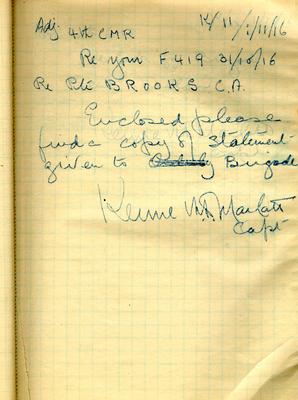 Adj 4th CMR
11/11/16
Re your F 419 31/10/16
Re Pte BROOKS C.A.
Enclosed please
find a copy of statement
given to Brigade
Capt